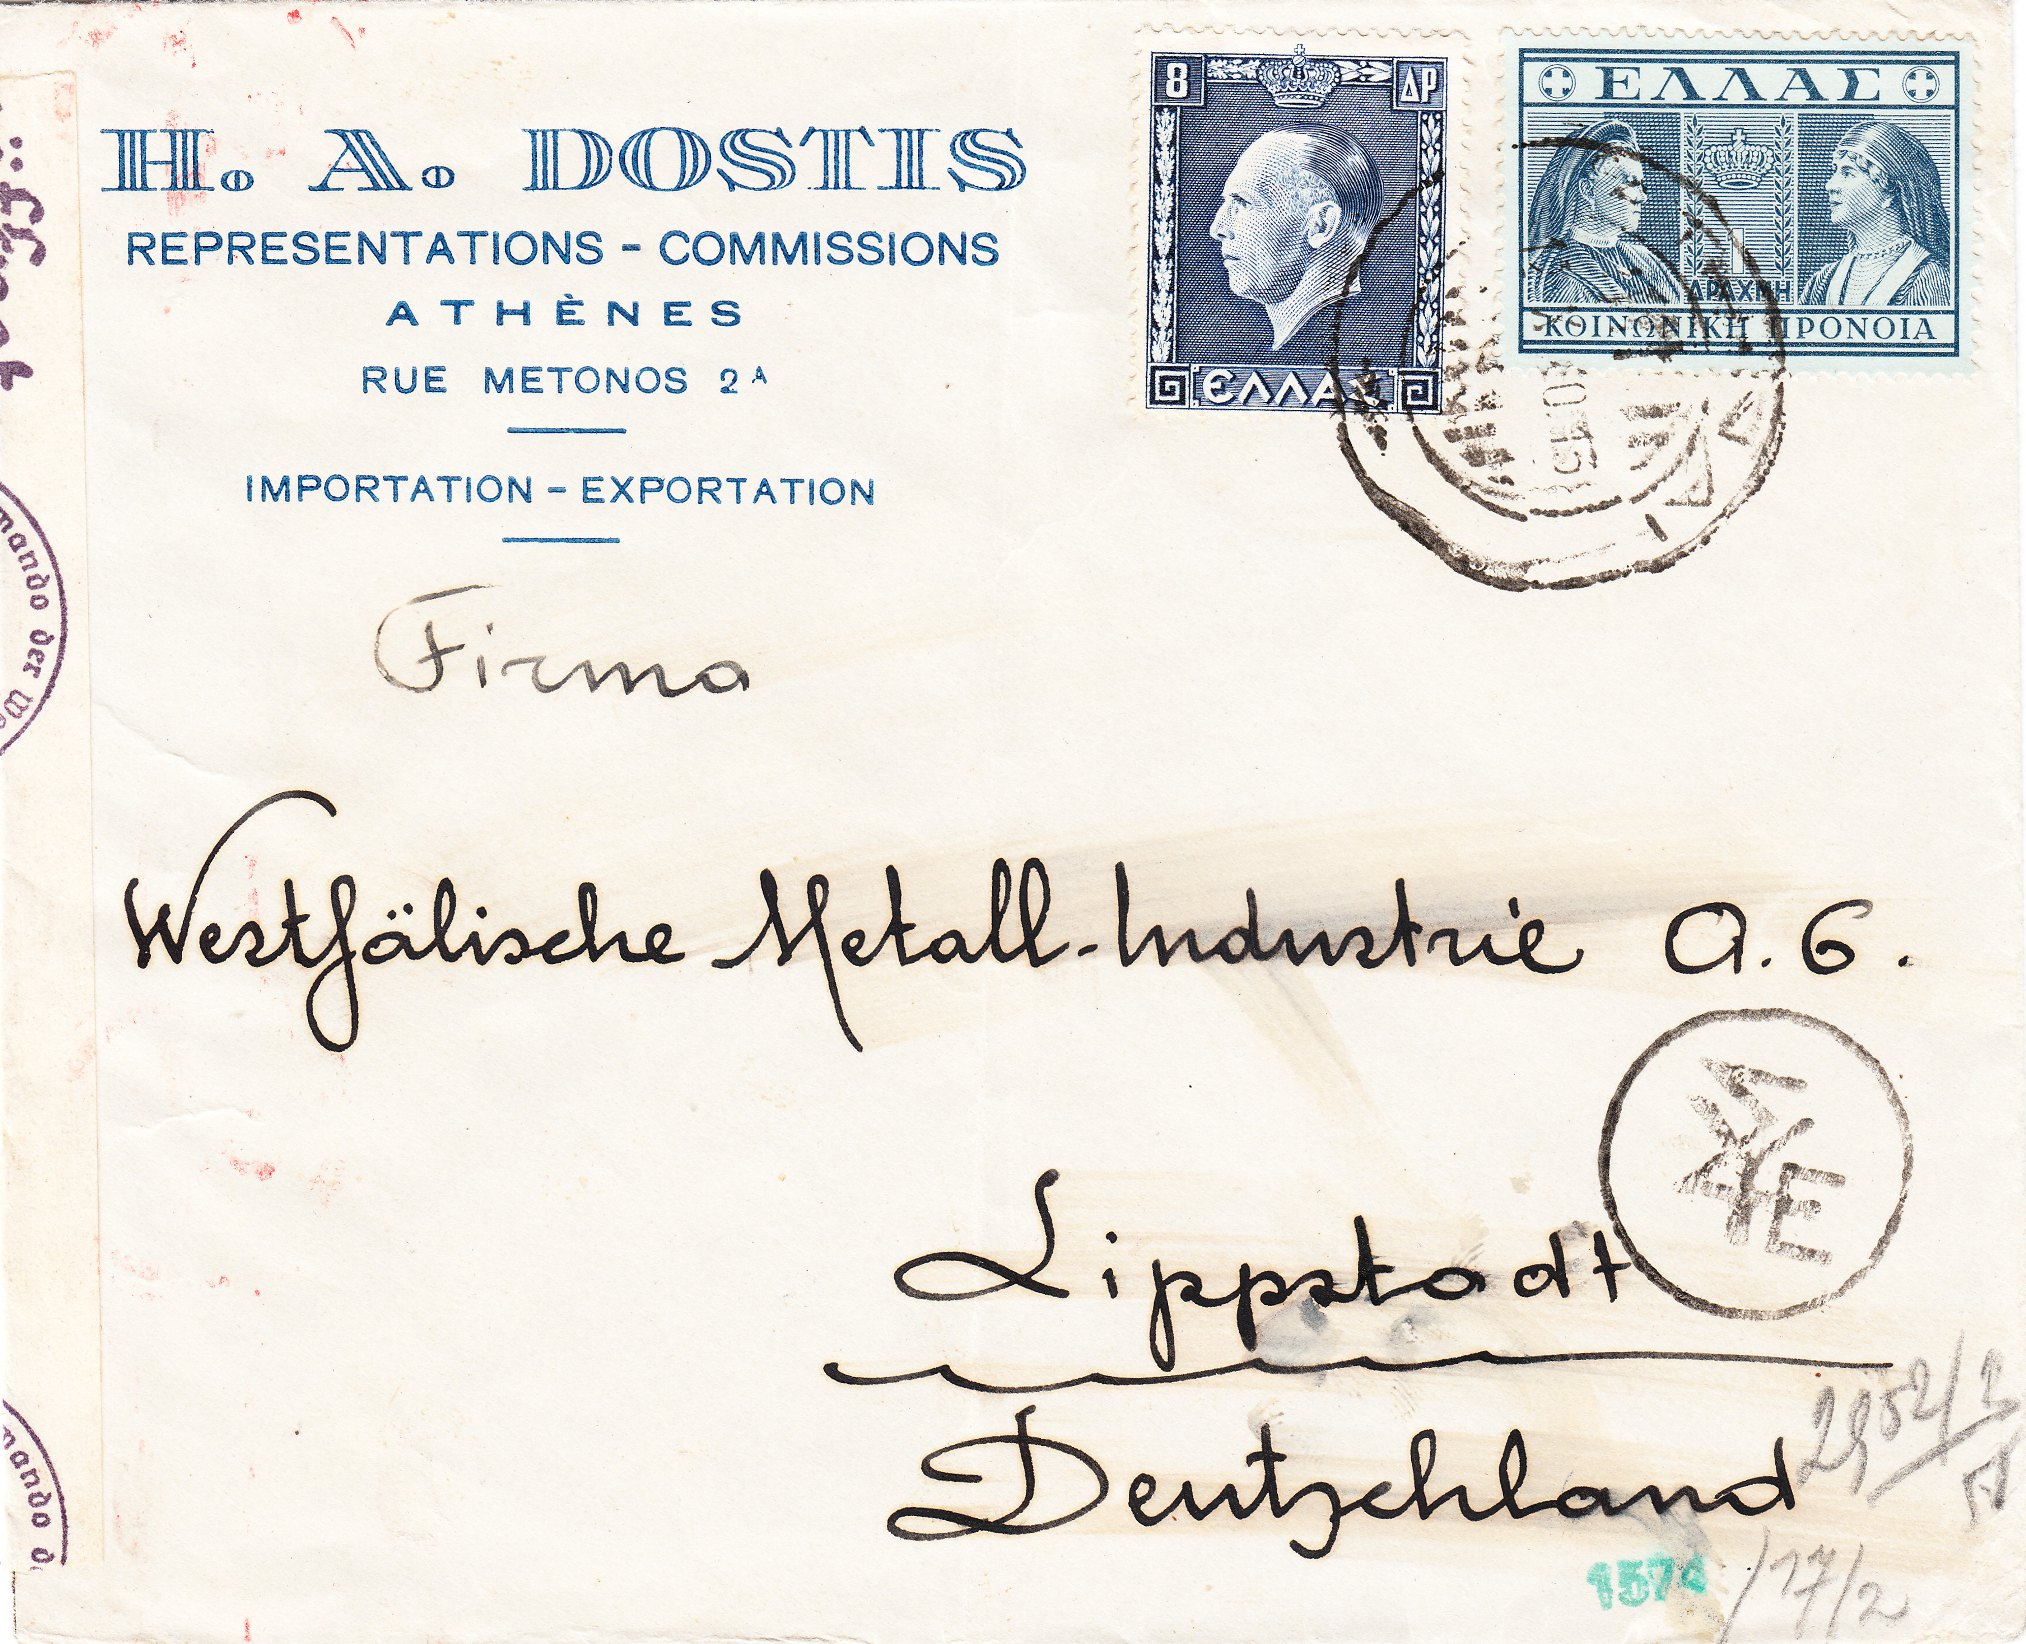 H. A. DOSTIS
REPRESENTATIONS - COMMISSIONS
ATHÈNES
RUE METONOS 2A
IMPORTATION - EXPORTATION
8 ΔΡ
ΕΛΛΑΣ
ΕΛΛΑΣ
1
ΔΡΑΧΜΗ
ΚΟΙΝΩΝΙΚΗ ΠΡΟΝΟΙΑ
Firma
Westfälische Metall-Industrie A. G.
Lippstadt
Deutschland
mando der
mando d
E
1574
/17/2